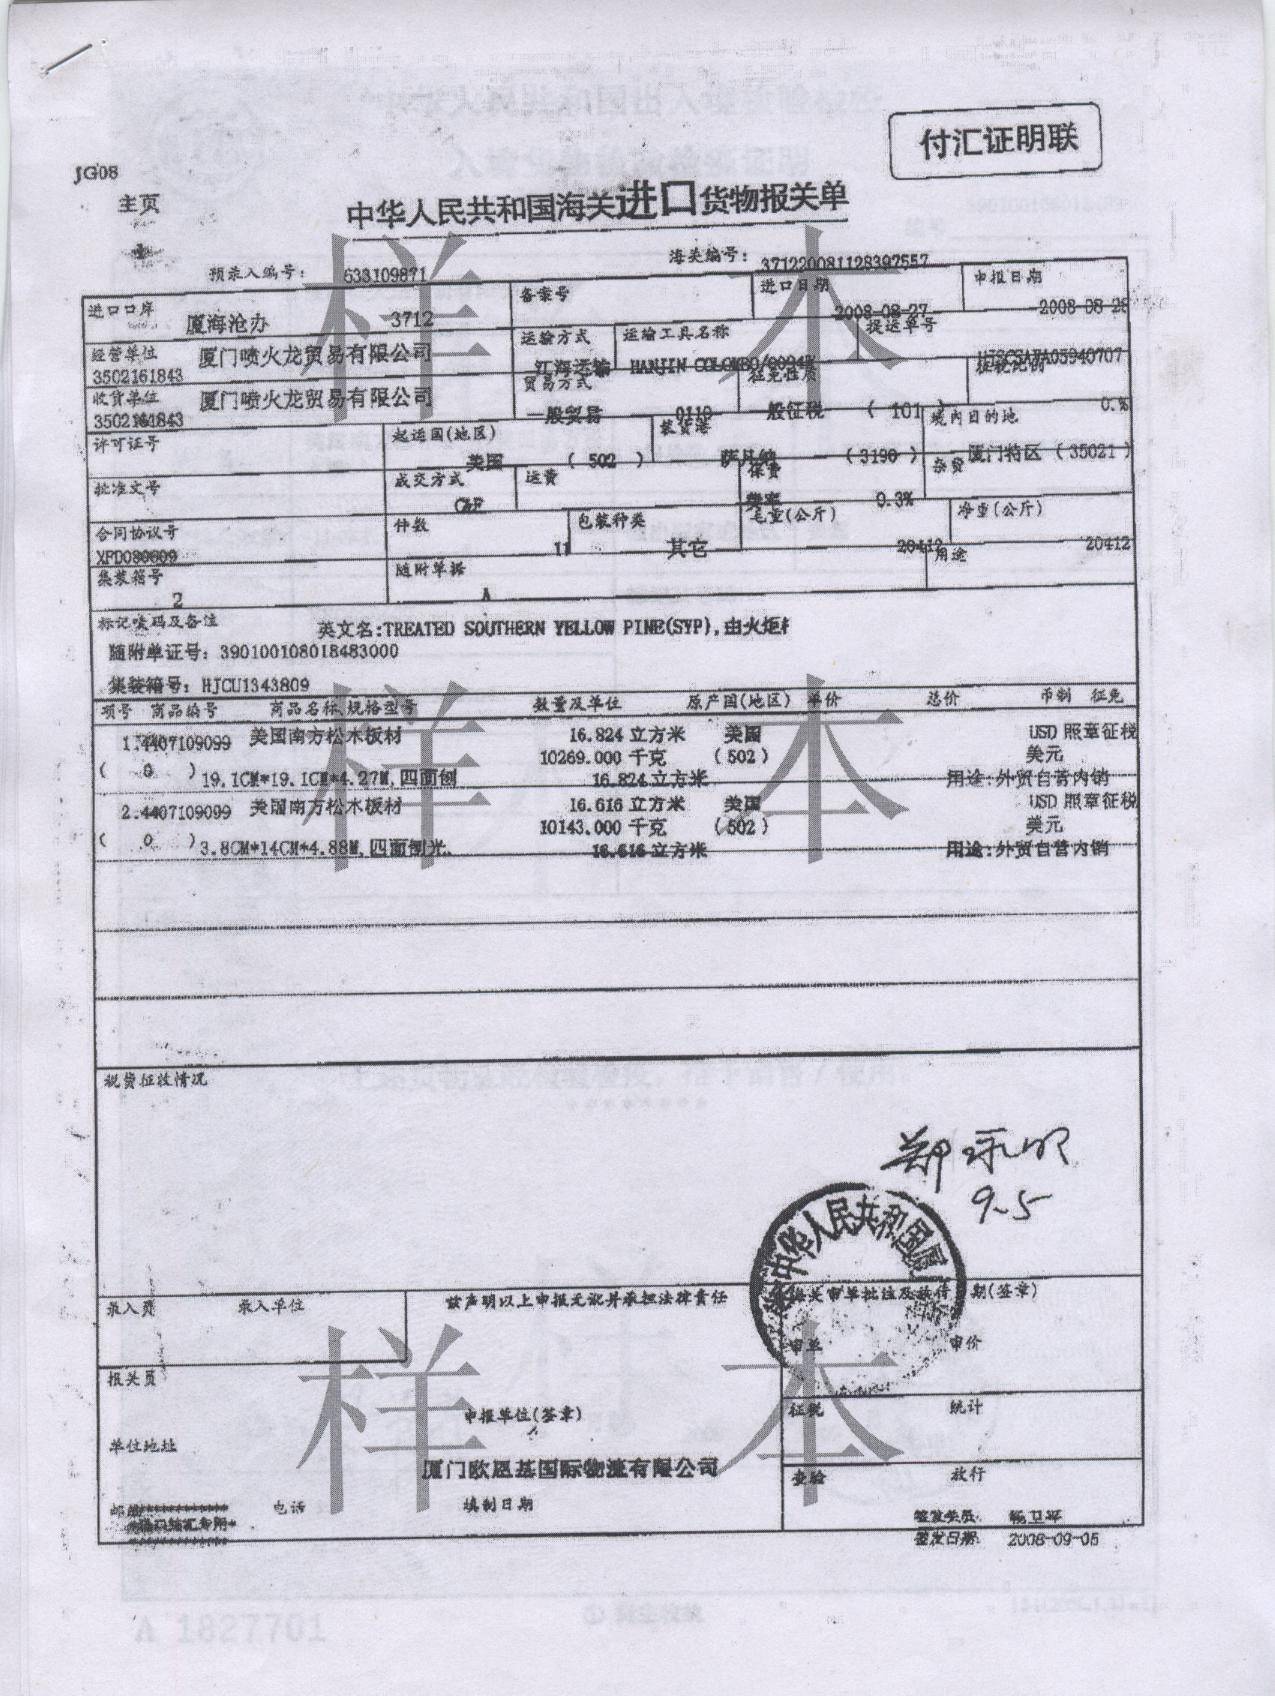 付汇证明联
JG08
主页
中华人民共和国海关进口货物报关单
预录入编号: 633109871 海关编号: 371220081128397557
进口口岸 厦海沧办 3712 备案号 进口日期 2008-08-27 申报日期 2008-08-28
经营单位 厦门喷火龙贸易有限公司 3502161843 运输方式 江海运输 运输工具名称 提运单号
收货单位 厦门喷火龙贸易有限公司 3502161843 贸易方式 一般贸易 0110 征免性质 一般征税 ( 101 ) 征税比例 0.%
许可证号 起运国(地区) 美国 ( 502 ) 装货港 萨凡纳 ( 3190 ) 境内目的地 厦门特区 ( 35021 )
批准文号 成交方式 C&F 运费 保费 费率 0.3% 杂费
合同协议号 件数 11 包装种类 其它 毛重(公斤) 20412 净重(公斤) 20412
集装箱号 2 随附单据 A 用途
标记唛码及备注 英文名:TREATED SOUTHERN YELLOW PINE(SYP),由火炬
随附单证号: 390100108018483000
集装箱号: HJCU1343809
项号 商品编号 商品名称、规格型号 数量及单位 原产国(地区) 单价 总价 币制 征免
1.4407109099 美国南方松木板材 16.824 立方米 美国 USD 照章征税
10269.000 千克 (502) 美元
( 0 ) 19.1CM*19.1CM*4.27M,四面刨 16.824立方米 用途:外贸自营内销
2.4407109099 美国南方松木板材 16.616 立方米 美国 USD 照章征税
10143.000 千克 (502) 美元
( 0 ) 3.8CM*14CM*4.88M,四面刨光. 16.616立方米 用途:外贸自营内销
税费征收情况
郑永明
9-5
中华人民共和国厦
录入员 录入单位 兹声明以上申报无讹并承担法律责任 海关审单批注及放行 期(签章)
审单 审价
报关员
申报单位(签章) 征税 统计
单位地址
厦门欧恩基国际物流有限公司 查验 放行
邮编 电话 填制日期
签发关员:
签发日期: 2008-09-05
样 本
样 本
样 本
A 1827701